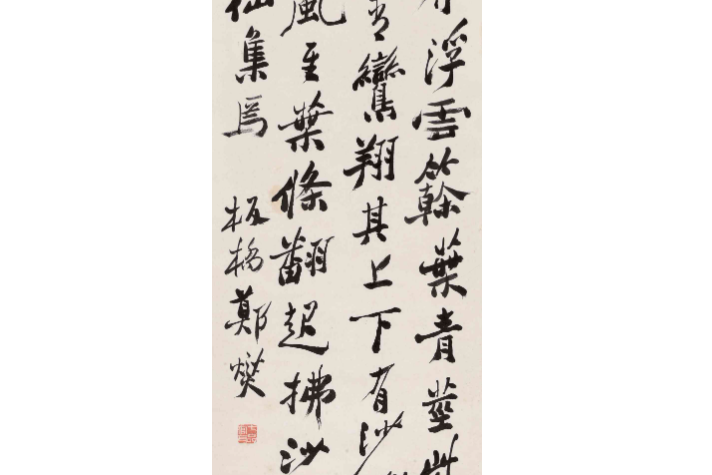 有浮雲簳葉青莖
青鸞翔其上下有沙
風至葉條翻起拂沙
仙集焉 板橋鄭燮